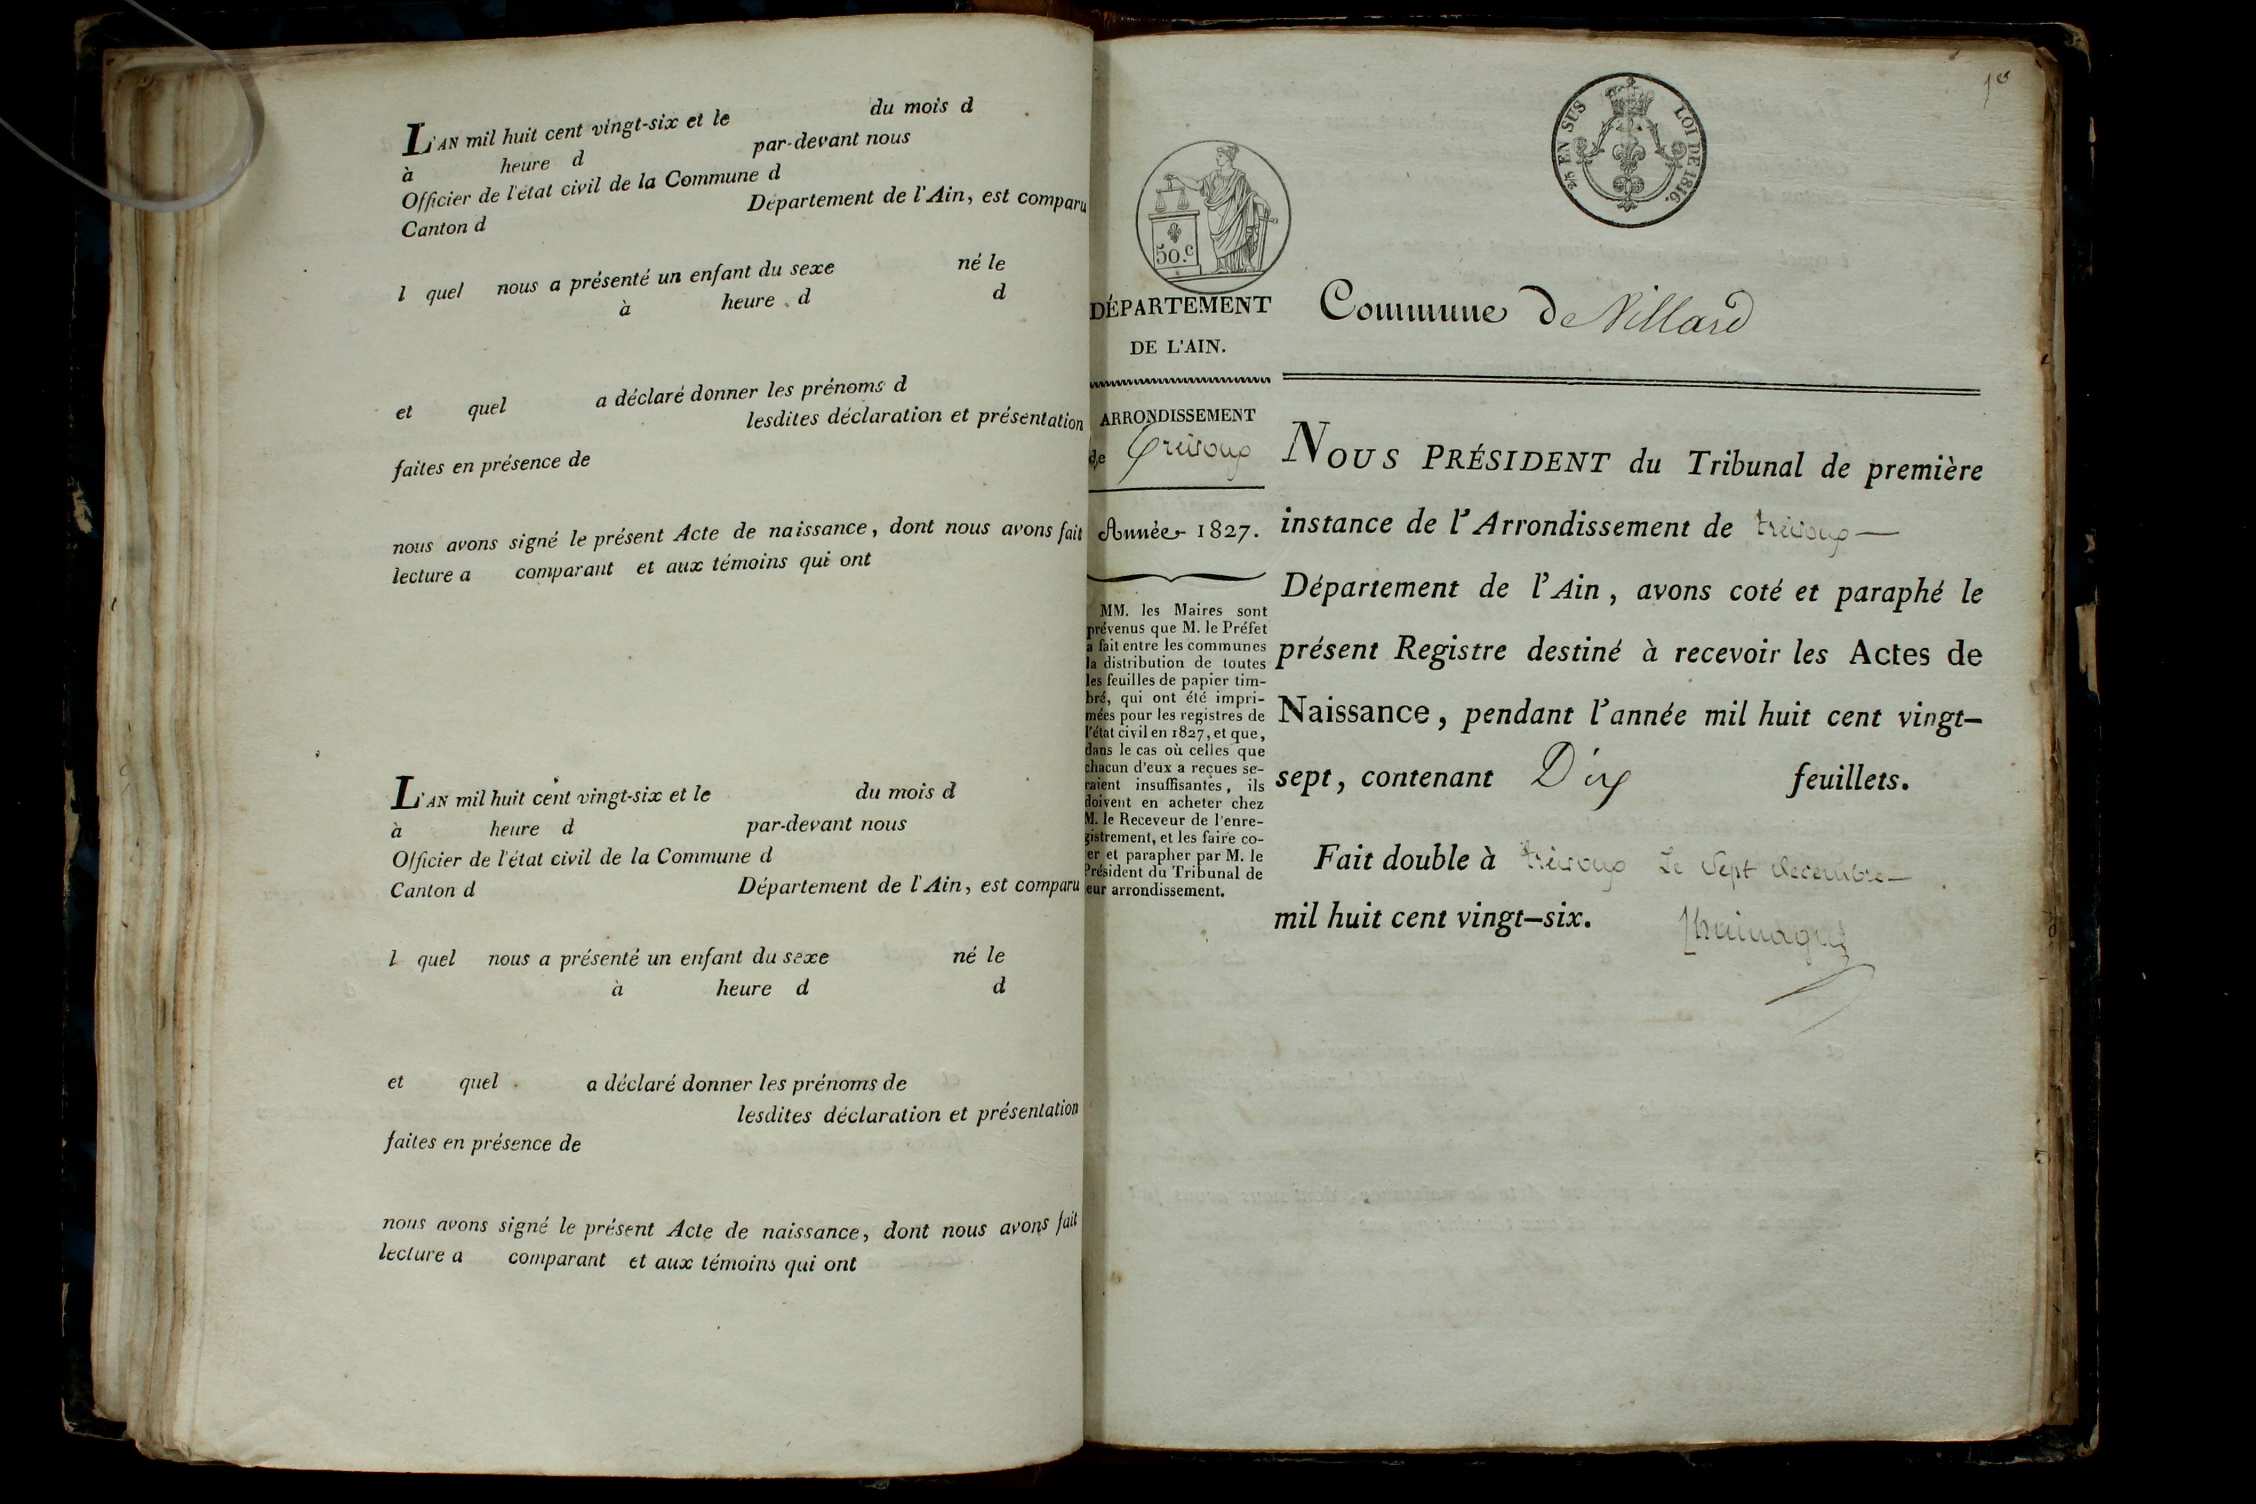 L'AN mil huit cent vingt-six et le du mois d
à heure d par-devant nous
Officier de l'état civil de la Commune d
Canton d Département de l'Ain, est comparu
l quel nous a présenté un enfant du sexe né le
à heure d d
et quel a déclaré donner les prénoms d
lesdites déclaration et présentation
faites en présence de
nous avons signé le présent Acte de naissance, dont nous avons fait
lecture a comparant et aux témoins qui ont
L'AN mil huit cent vingt-six et le du mois d
à heure d par-devant nous
Officier de l'état civil de la Commune d
Canton d Département de l'Ain, est comparu
l quel nous a présenté un enfant du sexe né le
à heure d d
et quel a déclaré donner les prénoms de
lesdites déclaration et présentation
faites en présence de
nous avons signé le présent Acte de naissance, dont nous avons fait
lecture a comparant et aux témoins qui ont
2/5 EN SUS LOI DE 1816.
50.c
DÉPARTEMENT
DE L'AIN.
ARRONDISSEMENT
de Trévoux
Année 1827.
MM. les Maires sont
prévenus que M. le Préfet
a fait entre les communes
la distribution de toutes
les feuilles de papier tim-
bré, qui ont été impri-
mées pour les registres de
l'état civil en 1827, et que,
dans le cas où celles que
chacun d'eux a reçues se-
raient insuffisantes, ils
doivent en acheter chez
M. le Receveur de l'enre-
gistrement, et les faire co-
ter et parapher par M. le
Président du Tribunal de
leur arrondissement.
Commune de Villard
NOUS PRÉSIDENT du Tribunal de première
instance de l'Arrondissement de trévoux
Département de l'Ain, avons coté et paraphé le
présent Registre destiné à recevoir les Actes de
Naissance, pendant l'année mil huit cent vingt-
sept, contenant Dix feuillets.
Fait double à trévoux Le Sept decembre
mil huit cent vingt-six.